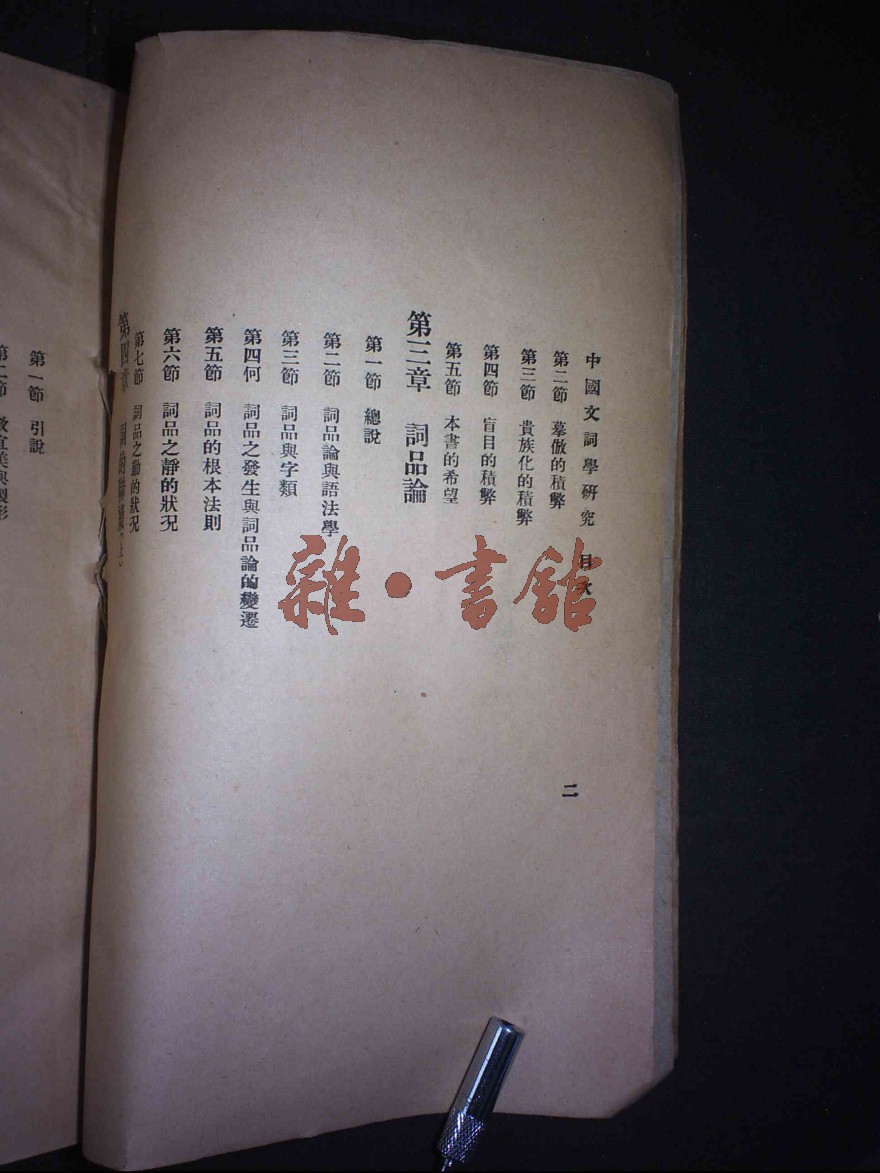 中國文詞學研究 目次
第二節 摹倣的積弊
第三節 貴族化的積弊
第四節 盲目的積弊
第五節 本書的希望
第三章 詞品論
第一節 總說
第二節 詞品論與語法學
第三節 詞品與字類
第四何 詞品之發生與詞品論的變遷
第五節 詞品的根本法則
第六節 詞品之靜的狀況
第七節 詞品之動的狀況
第四章 詞的
二
第一節 引說
第二節
雜·書館